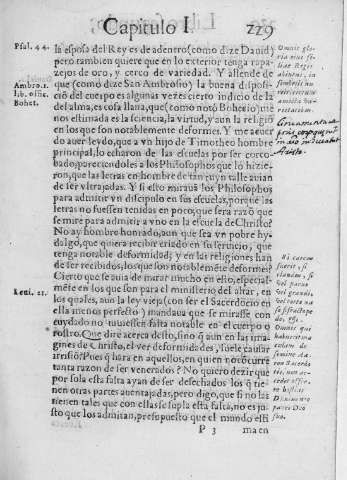 Capitulo I. 229
Psal. 44.
Ambro. 1.
lib. offic.
Bohet.
Leui. 21.
la esposa del Rey es de adentro (como dize Dauid)
pero tambien quiere que en lo exterior tenga rapa-
zejos de oro, y cerco de variedad. Y allende de
que (como dize San Ambrosio) la buena disposi-
ció del cuerpo es algunas vezes cierto indicio de la
del alma, es cosa llana, que (como notó Bohetio) me
nos estimada es la sciencia, la virtud, y aun la religió
en los que son notablemente deformes. Y me acuer
do auer leydo, que a vn hijo de Timotheo hombre
principal, lo echaron de las escuelas por ser corco-
bado, pareciendoles a los Philosophos que lo hizie-
ron, que las letras en hombre de tan ruyn talle auian
de ser vltrajadas. Y si esto mirauā los Philosophos
para admitir vn discipulo en sus escuelas, porque las
letras no fuessen tenidas en poco, que sera razō que
se mire para admitir a vno en la escuela de Christo?
No ay hombre honrado, aun que sea vn pobre hy-
dalgo, que quiera recebir criado en su seruicio, que
tenga notable deformidad; y en las religiones han
de ser recebidos, los que son notablemēte deformes?
Cierto que se auia de mirar mucho en ello, especial-
mēte en los que son para el ministerio del altar, en
los quales, aun la ley vieja (con ser el Sacerdocio en
ella menos perfecto) mandaua que se mirasse con
cuydado no vuiessen falta notable en el cuerpo o
rostro. Que dire acerca desto, sino q̃ aun en las ima-
gines de Christo, el ver deformidades, suele causar
irrisiō? Pues q̃ hara en aquellos, en quien no cōcurre
tanta razon de ser venerados? No quiero dezir que
por sola esta falta ayan de ser desechados los q̃ tie-
nen otras partes auentajadas, pero digo, que si no las
tienen tales que con ellas se supla esta falta, no es ju-
sto que los admitan, presupuesto que el mundo esti
P 3 ma en
Omnis glo-
ria eius fi-
liæ Regis
ab intus, in
fimbrijs au
reis circum
amicta va-
rietatibus.